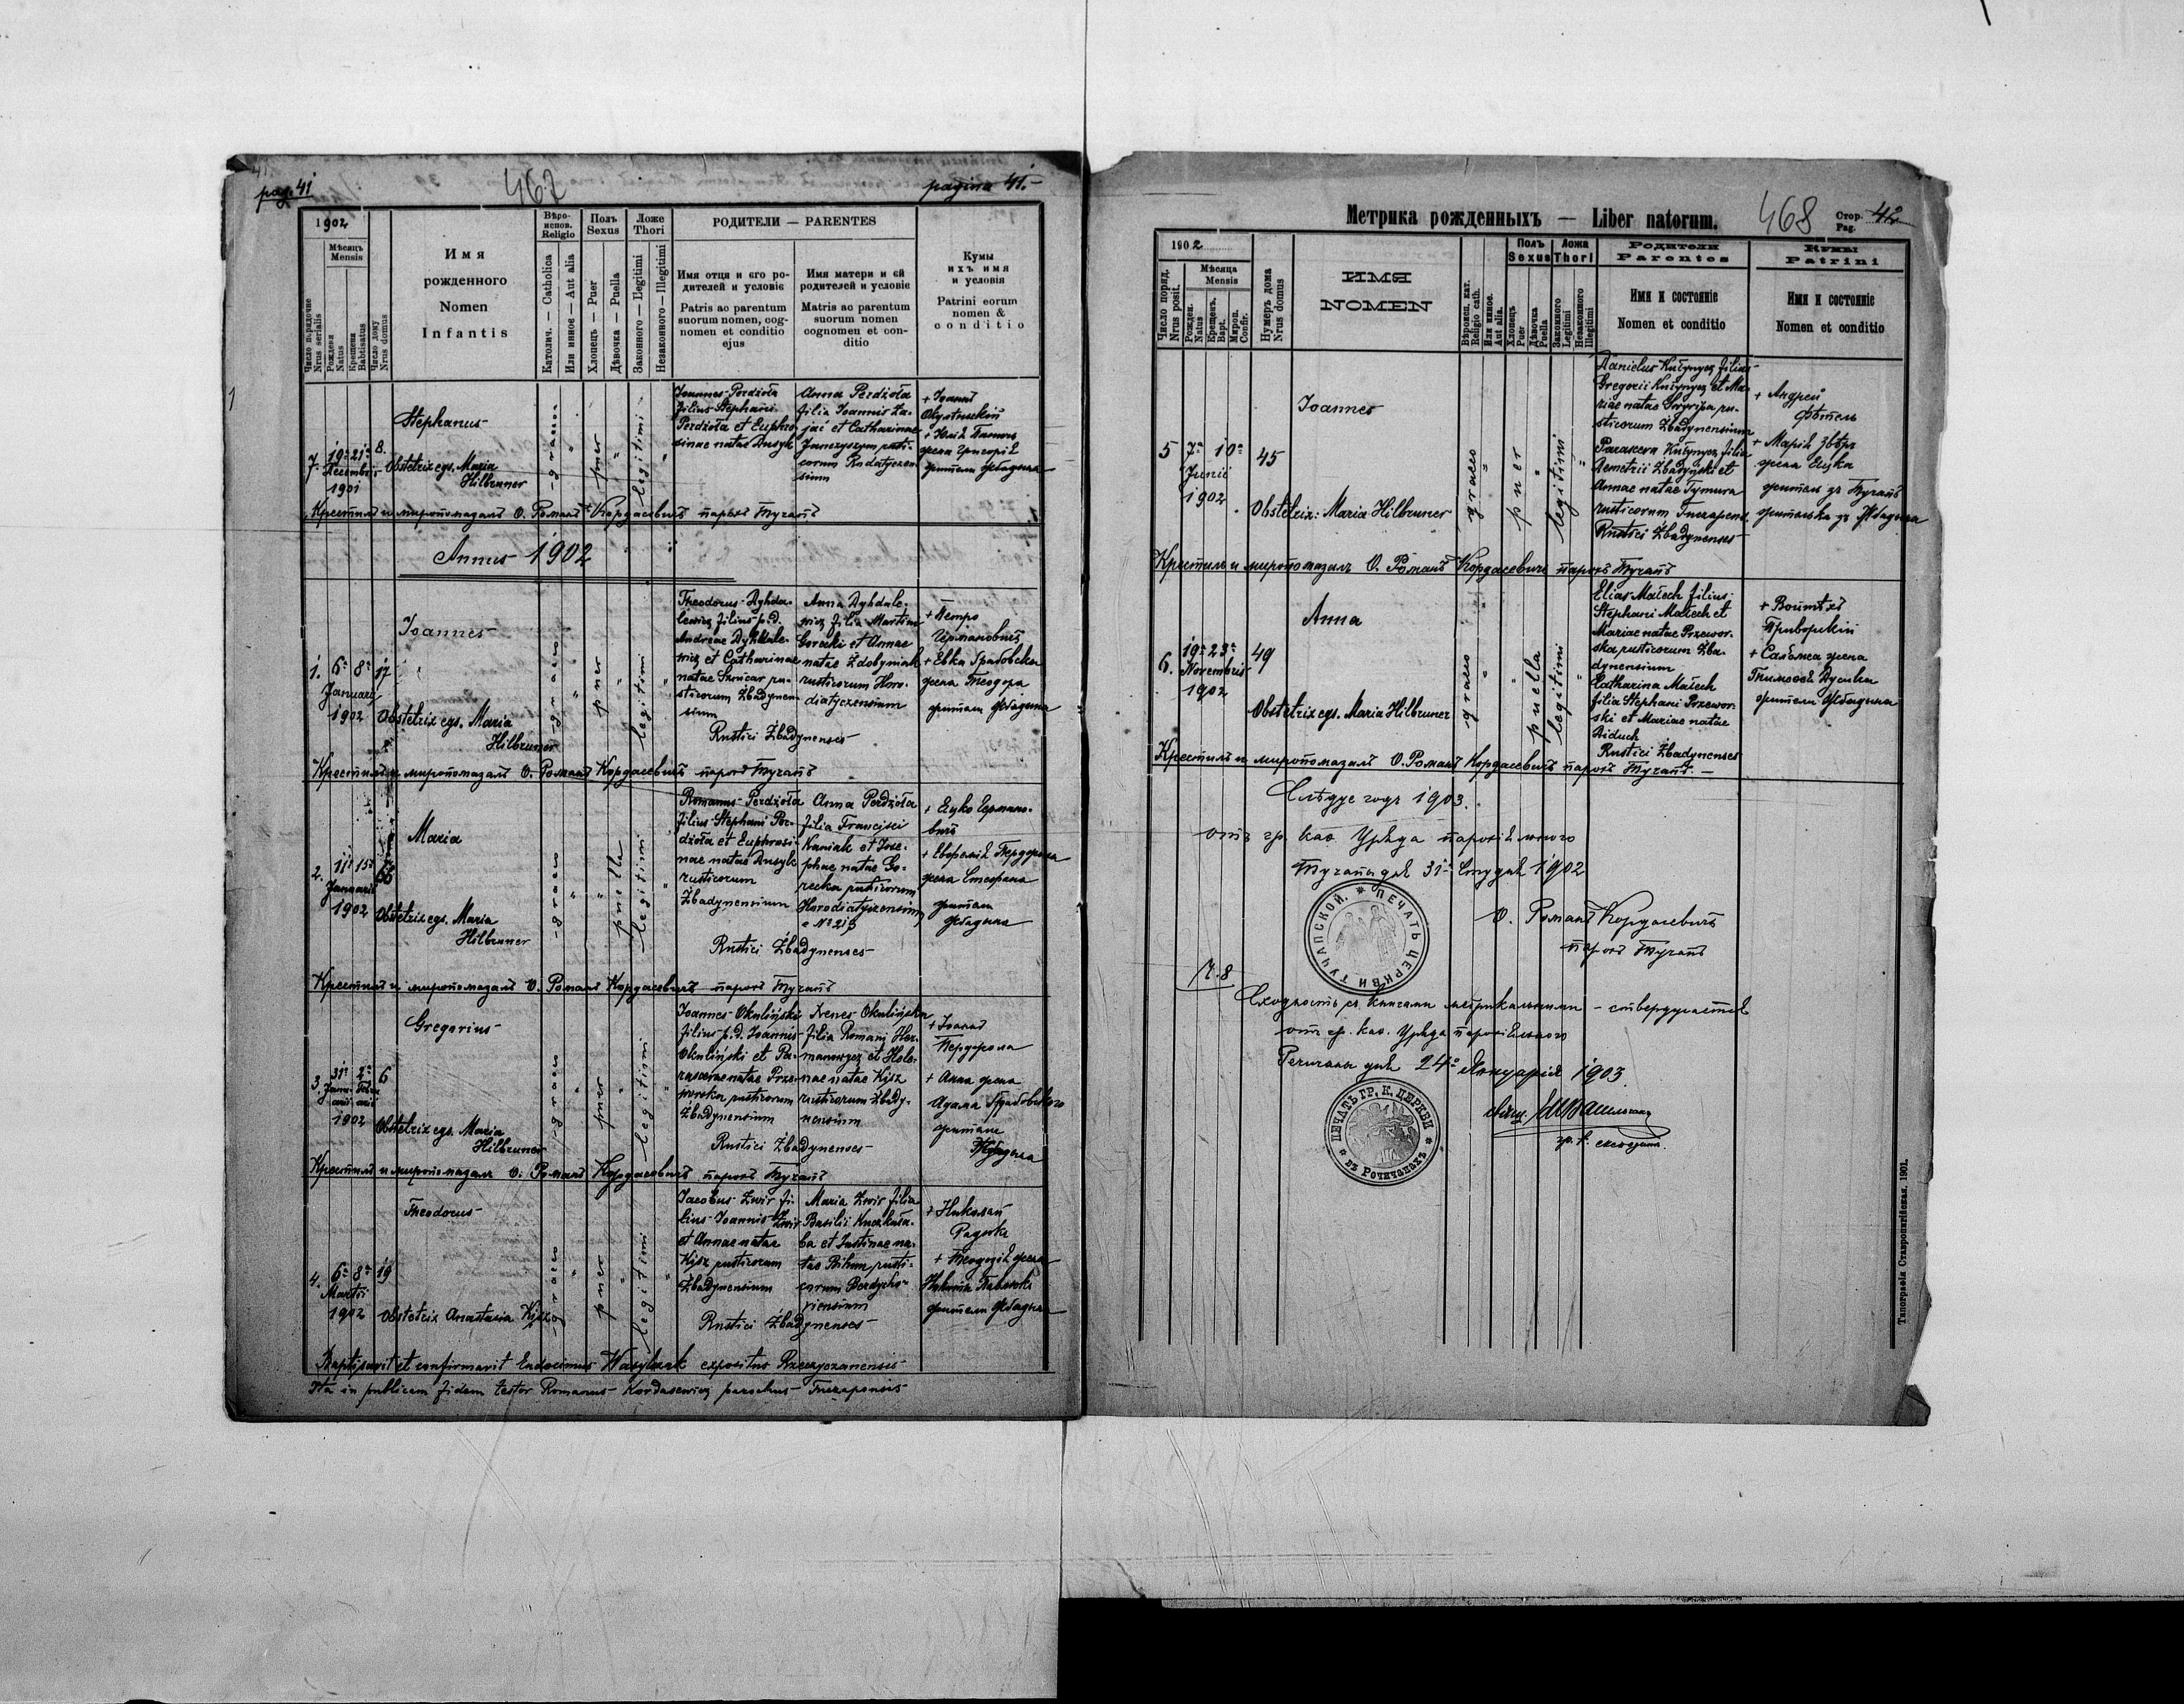 pag. 41
467
pagina 41.-
1902
Мѣсяць
Mensis
Число порядочне
Nrus serialis
Рожденя
Natus
Крещеня
Babtisatus
Число дому
Nrus domus
Имя
рожденного
Nomen
Infantis
Вѣро-
испов.
Religio
Католич. — Catholica
Или инное — Aut alia
Полъ
Sexus
Хлопець — Puer
Дѣвочка — Puella
Ложе
Thori
Законного — Legitimi
Незаконного — Illegitimi
РОДИТЕЛИ — PARENTES
Имя отця и єго ро-
дителей и условіє
Patris ac parentum
suorum nomen, cog-
nomen et conditio
ejus
Имя матери и єй
родителей и условіє
Matris ac parentum
suorum nomen
cognomen et con-
ditio
Кумы
ихъ имя
и условія
Patrini eorum
nomen &
conditio
7. 19. 21. 8.
Decembris
1901
Stephanus
Obstetrix egs. Maria
Hilbruner
graeco
puer
legitimi
Joannes Perdzioła
filius Stephani
Perdzioła et Euphro-
sinae natae Ansyk
Anna Perdzioła
filia Joannis Za-
jać et Catharinae
rusti-
corum Rudatyczen-
sium
+ Іоаннъ
жена Григорія
жители Жбадына
Крестилъ и миропомазалъ О. Романъ Кордасевичъ парохъ Тучапъ
Annus 1902
1. 6. 8. 17
January
1902
Joannes
Obstetrix egs. Maria
Hilbruner
graeco
puer
legitimi
Theodorus Dyhda-
lewicz filius p.d.
Andreae Dyhdale-
wicz et Catharinae
natae ru-
sticorum Zbadynen-
sium
Anna Dyhdale-
wicz filia Martini
Gorecki et Annae
natae Zdobyniak
rusticorum Horo-
diatyczensium
Rustici Zbadynenses
+ Петро
Германовичъ
+ Евка Грабовска
жена Теодора
жители Жбадына
Крестилъ и миропомазалъ О. Романъ Кордасевичъ парохъ Тучапъ
2. 11. 15. 66
Januarii
1902
Maria
Obstetrix egs. Maria
Hilbruner
graeco
puella
legitimi
Romanus Perdzioła
filius Stephani Per-
dzioła et Euphrosi-
nae natae Ansyk
rusticorum
Zbadynensium
Anna Perdzioła
filia Francisci
Kaniak et Jose-
phae natae Go-
recka rusticorum
Horodiatyczensium
Rustici Zbadynenses
+ Ецко Германо-
вичъ
+ Евфемія Перджола
жена Стефана
жители
Жбадына
Крестилъ и миропомазалъ О. Романъ Кордасевичъ парохъ Тучапъ
3. 31. 2. 6
1902
Gregorius
Obstetrix egs. Maria
Hilbruner
graeco
puer
legitimi
Joannes Okuliński
filius p.d. Joannis
Okuliński et Pa-
rascevae natae Prze-
worska rusticorum
Zbadynensium
Irenes Okulińska
filia Romani Her-
manowycz et Hele-
nae natae Kijsz
rusticorum Zbady-
nensium
Rustici Zbadynenses
+ Іоаннъ
Перджола
+ Анна жена
Адама Грабовского
жители
Жбадына
Крестилъ и миропомазалъ О. Романъ Кордасевичъ парохъ Тучапъ
4. 6. 8. 19
Martii
1902
Theodorus
Obstetrix Anastasia Kijsz
graeco
puer
legitimi
Jacobus Zwir fi-
lius Joannis Zwir
et Annae natae
Kijsz rusticorum
Zbadynensium
Maria Zwir filia
Basilii Kuczkuda-
ba et Justinae na-
tae Bihun rusti-
corum
Rustici Zbadynenses
+ Николай
+ Теодозія жена
жители Жбадына
Baptisavit et confirmavit Eudocimus Wasylczak expositus Rzeczyczanensis
Ita in publicam fidem testor Romanus Kordasewicz parochus Tuczapensis
Метрика рожденныхъ — Liber natorum.
468
Стор. 42
Pag.
1902
Число поряд.
Nrus posit.
Мѣсяца
Mensis
Рожден.
Natus
Крещенъ.
Bapt.
Мироп.
Confir.
Нумеръ дома
Nrus domus
ИМЯ
NOMEN
Вѣроисп. кат.
Religio cath.
Или инное.
Aut alia.
Полъ
Sexus
Хлопець
Puer
Дѣвочка
Puella
Ложа
Thori
Законного
Legitimi
Незаконного
Illegitimi
Родители
Parentes
Имя и состояніе
Nomen et conditio
Кумы
Patrini
Имя и состояніе
Nomen et conditio
5 7. 10. 45
Junii
1902
Joannes
Obstetrix: Maria Hilbruner
graeco
puer
legitimi
Danielus Kułynycz filius
Gregorii Kułynycz et Ma-
riae natae ru-
sticorum Zbadynensium
Parasceva Kułynycz filia
Demetrii Zbadyński et
Annae natae Tymura
rusticorum Tuczapens.
Rustici Zbadynenses
+ Андрей
+ Марія Звѣръ
жена Ецка
житель зъ Тучапъ
жителька зъ Жбадына
Крестилъ и миропомазалъ О. Романъ Кордасевичъ парохъ Тучапъ
6. 19. 23. 49
Novembris
1902
Anna
Obstetrix egs. Maria Hilbruner
graeco
puella
legitimi
Elias Małech filius
Stephani Małech et
Mariae natae Przewor-
ska rusticorum Zba-
dynensium
Catharina Małech
filia Stephani Przewor-
ski et Mariae natae
Diduch
Rustici Zbadynenses
+ Войтѣхъ
Приворскій
жена
жители Жбадына
Крестилъ и миропомазалъ О. Романъ Кордасевичъ парохъ Тучапъ.
Слѣдує годъ 1903.
отъ гр. као. Уряда парохіяльного
Тучапы дня 31 Студня 1902
О. Романъ Кордасевичъ
парохъ Тучапъ
ПЕЧАТЬ ЦЕРКВИ ТУЧАПСКОЙ.
Ч. 8
Сходность съ книгами метрикальными - стверджается
отъ гр. као. Уряда парохіяльного
Речичаны дня 24 Януарія 1903
ПЕЧАТЬ ГР. К. ЦЕРКВИ
въ Речичанахъ
Типографія Ставропигійская 1901.